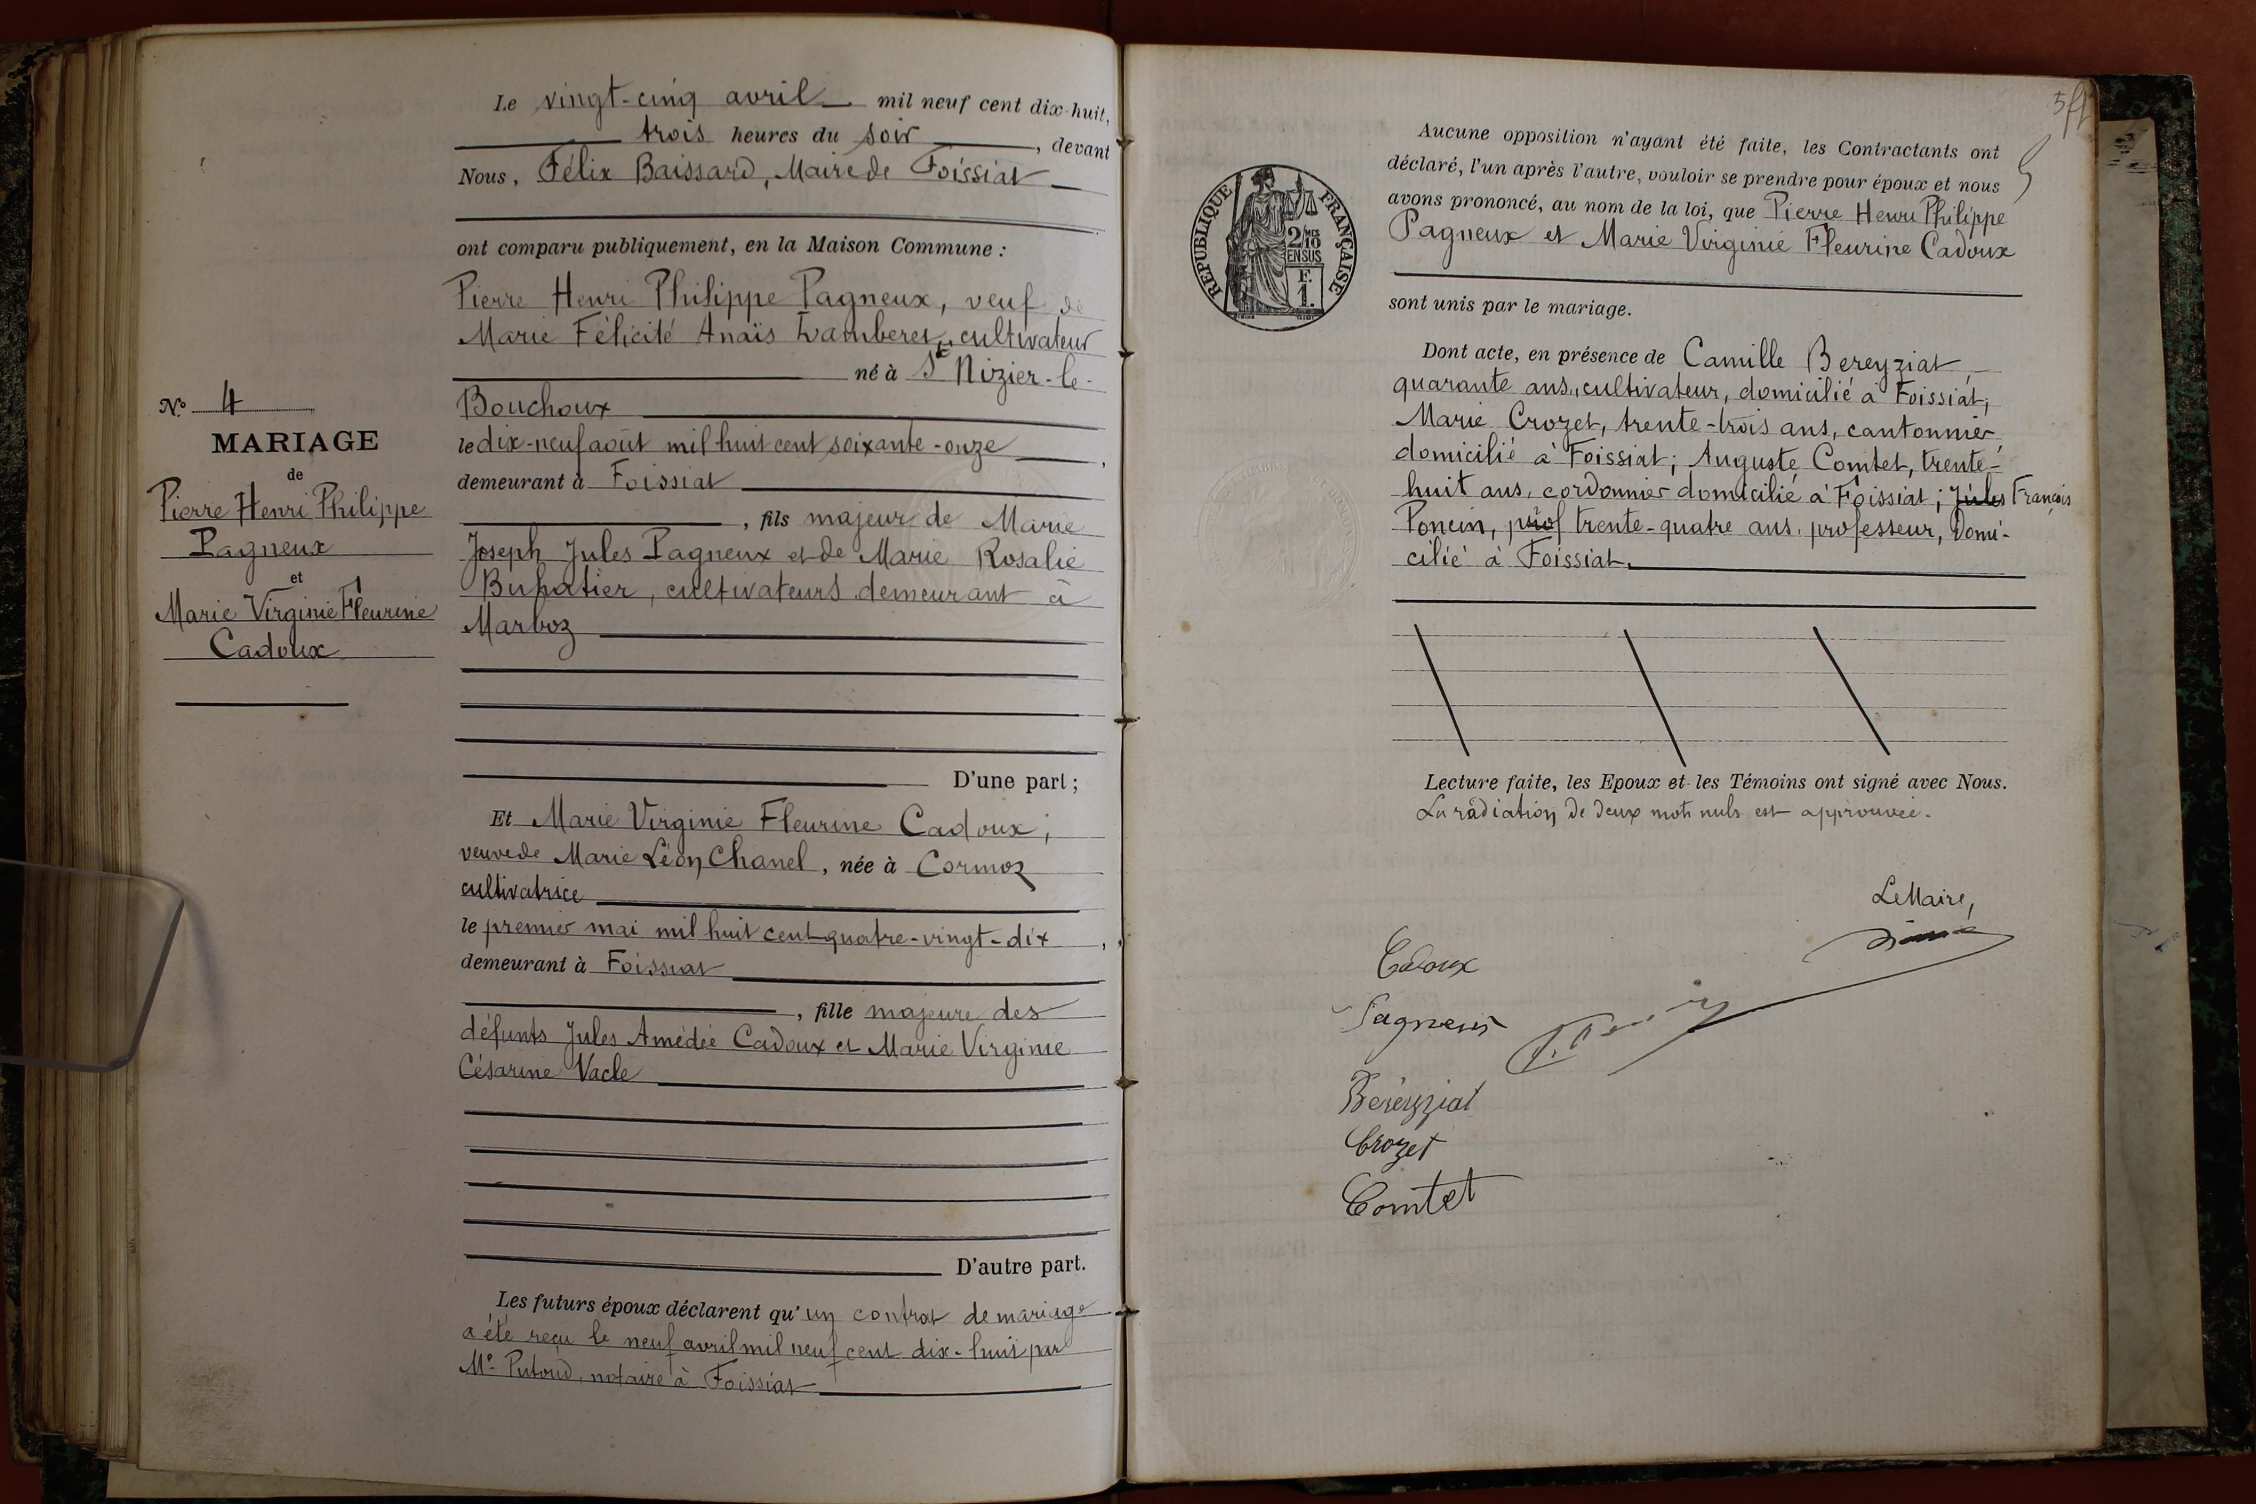 Le vingt-cinq avril mil neuf cent dix-huit,
trois heures du soir, devant
Nous, Félix Baissard, Maire de Foissiat
ont comparu publiquement, en la Maison Commune :
Pierre Henri Philippe Pagneux, veuf de
Marie Félicité Anaïs Lamberet, cultivateur
né à St Nizier-le-
Bouchoux
le dix-neuf août mil huit cent soixante-onze,
demeurant à Foissiat
, fils majeur de Marie
Joseph Jules Pagneux et de Marie Rosalie
Buhatier, cultivateurs demeurant à
Marboz
D'une part ;
Et Marie Virginie Fleurine Cadoux,
veuve de Marie Léon Chanel, née à Cormoz
cultivatrice
le premier mai mil huit cent quatre-vingt-dix,
demeurant à Foissiat
, fille majeure des
défunts Jules Amédée Cadoux et Marie Virginie
Césarine Vacle
D'autre part.
Les futurs époux déclarent qu'un contrat de mariage
a été reçu le neuf avril mil neuf cent dix-huit par
Me Putoud, notaire à Foissiat
No 4
MARIAGE
de
Pierre Henri Philippe
Pagneux
et
Marie Virginie Fleurine
Cadoux
Aucune opposition n'ayant été faite, les Contractants ont
déclaré, l'un après l'autre, vouloir se prendre pour époux et nous
avons prononcé, au nom de la loi, que Pierre Henri Philippe
Pagneux et Marie Virginie Fleurine Cadoux
sont unis par le mariage.
RÉPUBLIQUE FRANÇAISE
2/10 MES
EN SUS
F.
1.
Dont acte, en présence de Camille Bereyziat,
quarante ans, cultivateur, domicilié à Foissiat;
Marie Crozet, trente-trois ans, cantonnier
domicilié à Foissiat; Auguste Comtet, trente-
huit ans, cordonnier domicilié à Foissiat; Jules François
Poncin, prof trente-quatre ans, professeur, domi-
cilié à Foissiat.
Lecture faite, les Epoux et les Témoins ont signé avec Nous.
La radiation de deux mots nuls est approuvée.
Le Maire,
Cadoux
Pagneux
Béréyziat
Crozet
Comtet